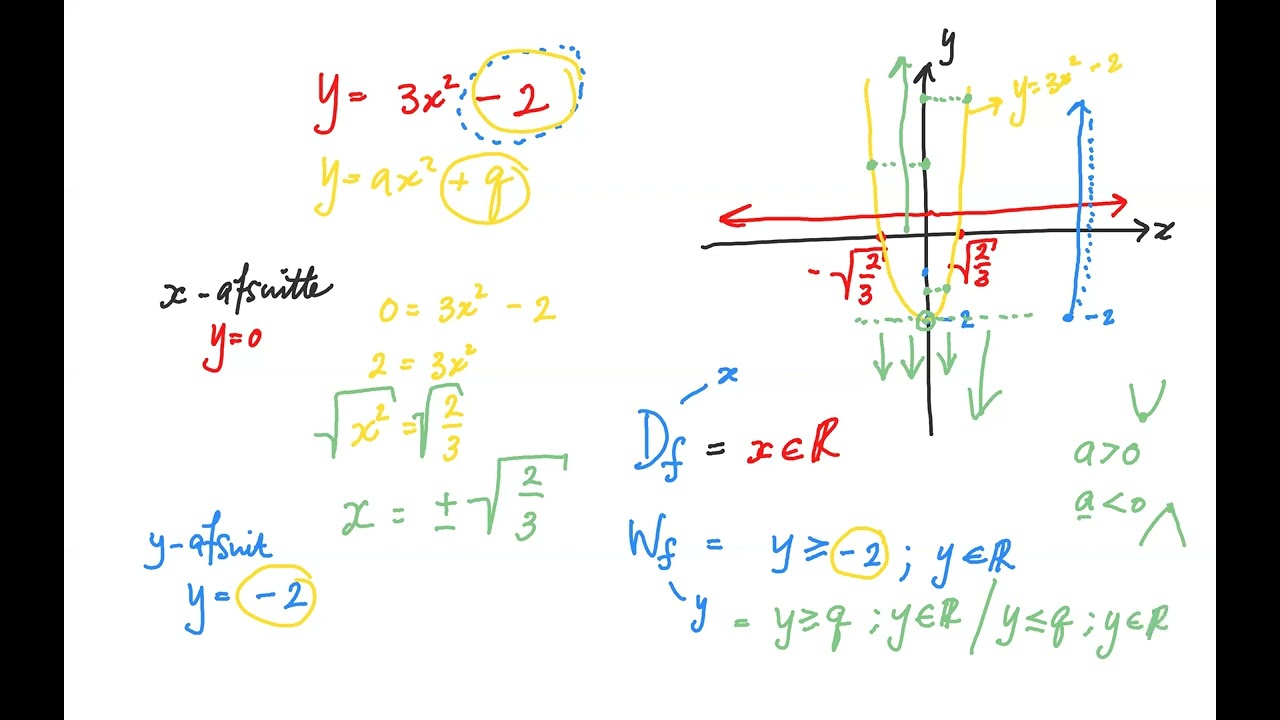 y = 3x² - 2
y = ax² + q
x - afsnitte
y = 0
0 = 3x² - 2
2 = 3x²
√x² = √2/3
x = ± √2/3
y-afsnit
y = -2
y
y = 3x² - 2
x
-√2/3
√2/3
-2
-2
x
D_f = x ∈ ℝ
a > 0
a < 0
W_f = y ≥ -2 ; y ∈ ℝ
y
= y ≥ q ; y ∈ ℝ / y ≤ q ; y ∈ ℝ